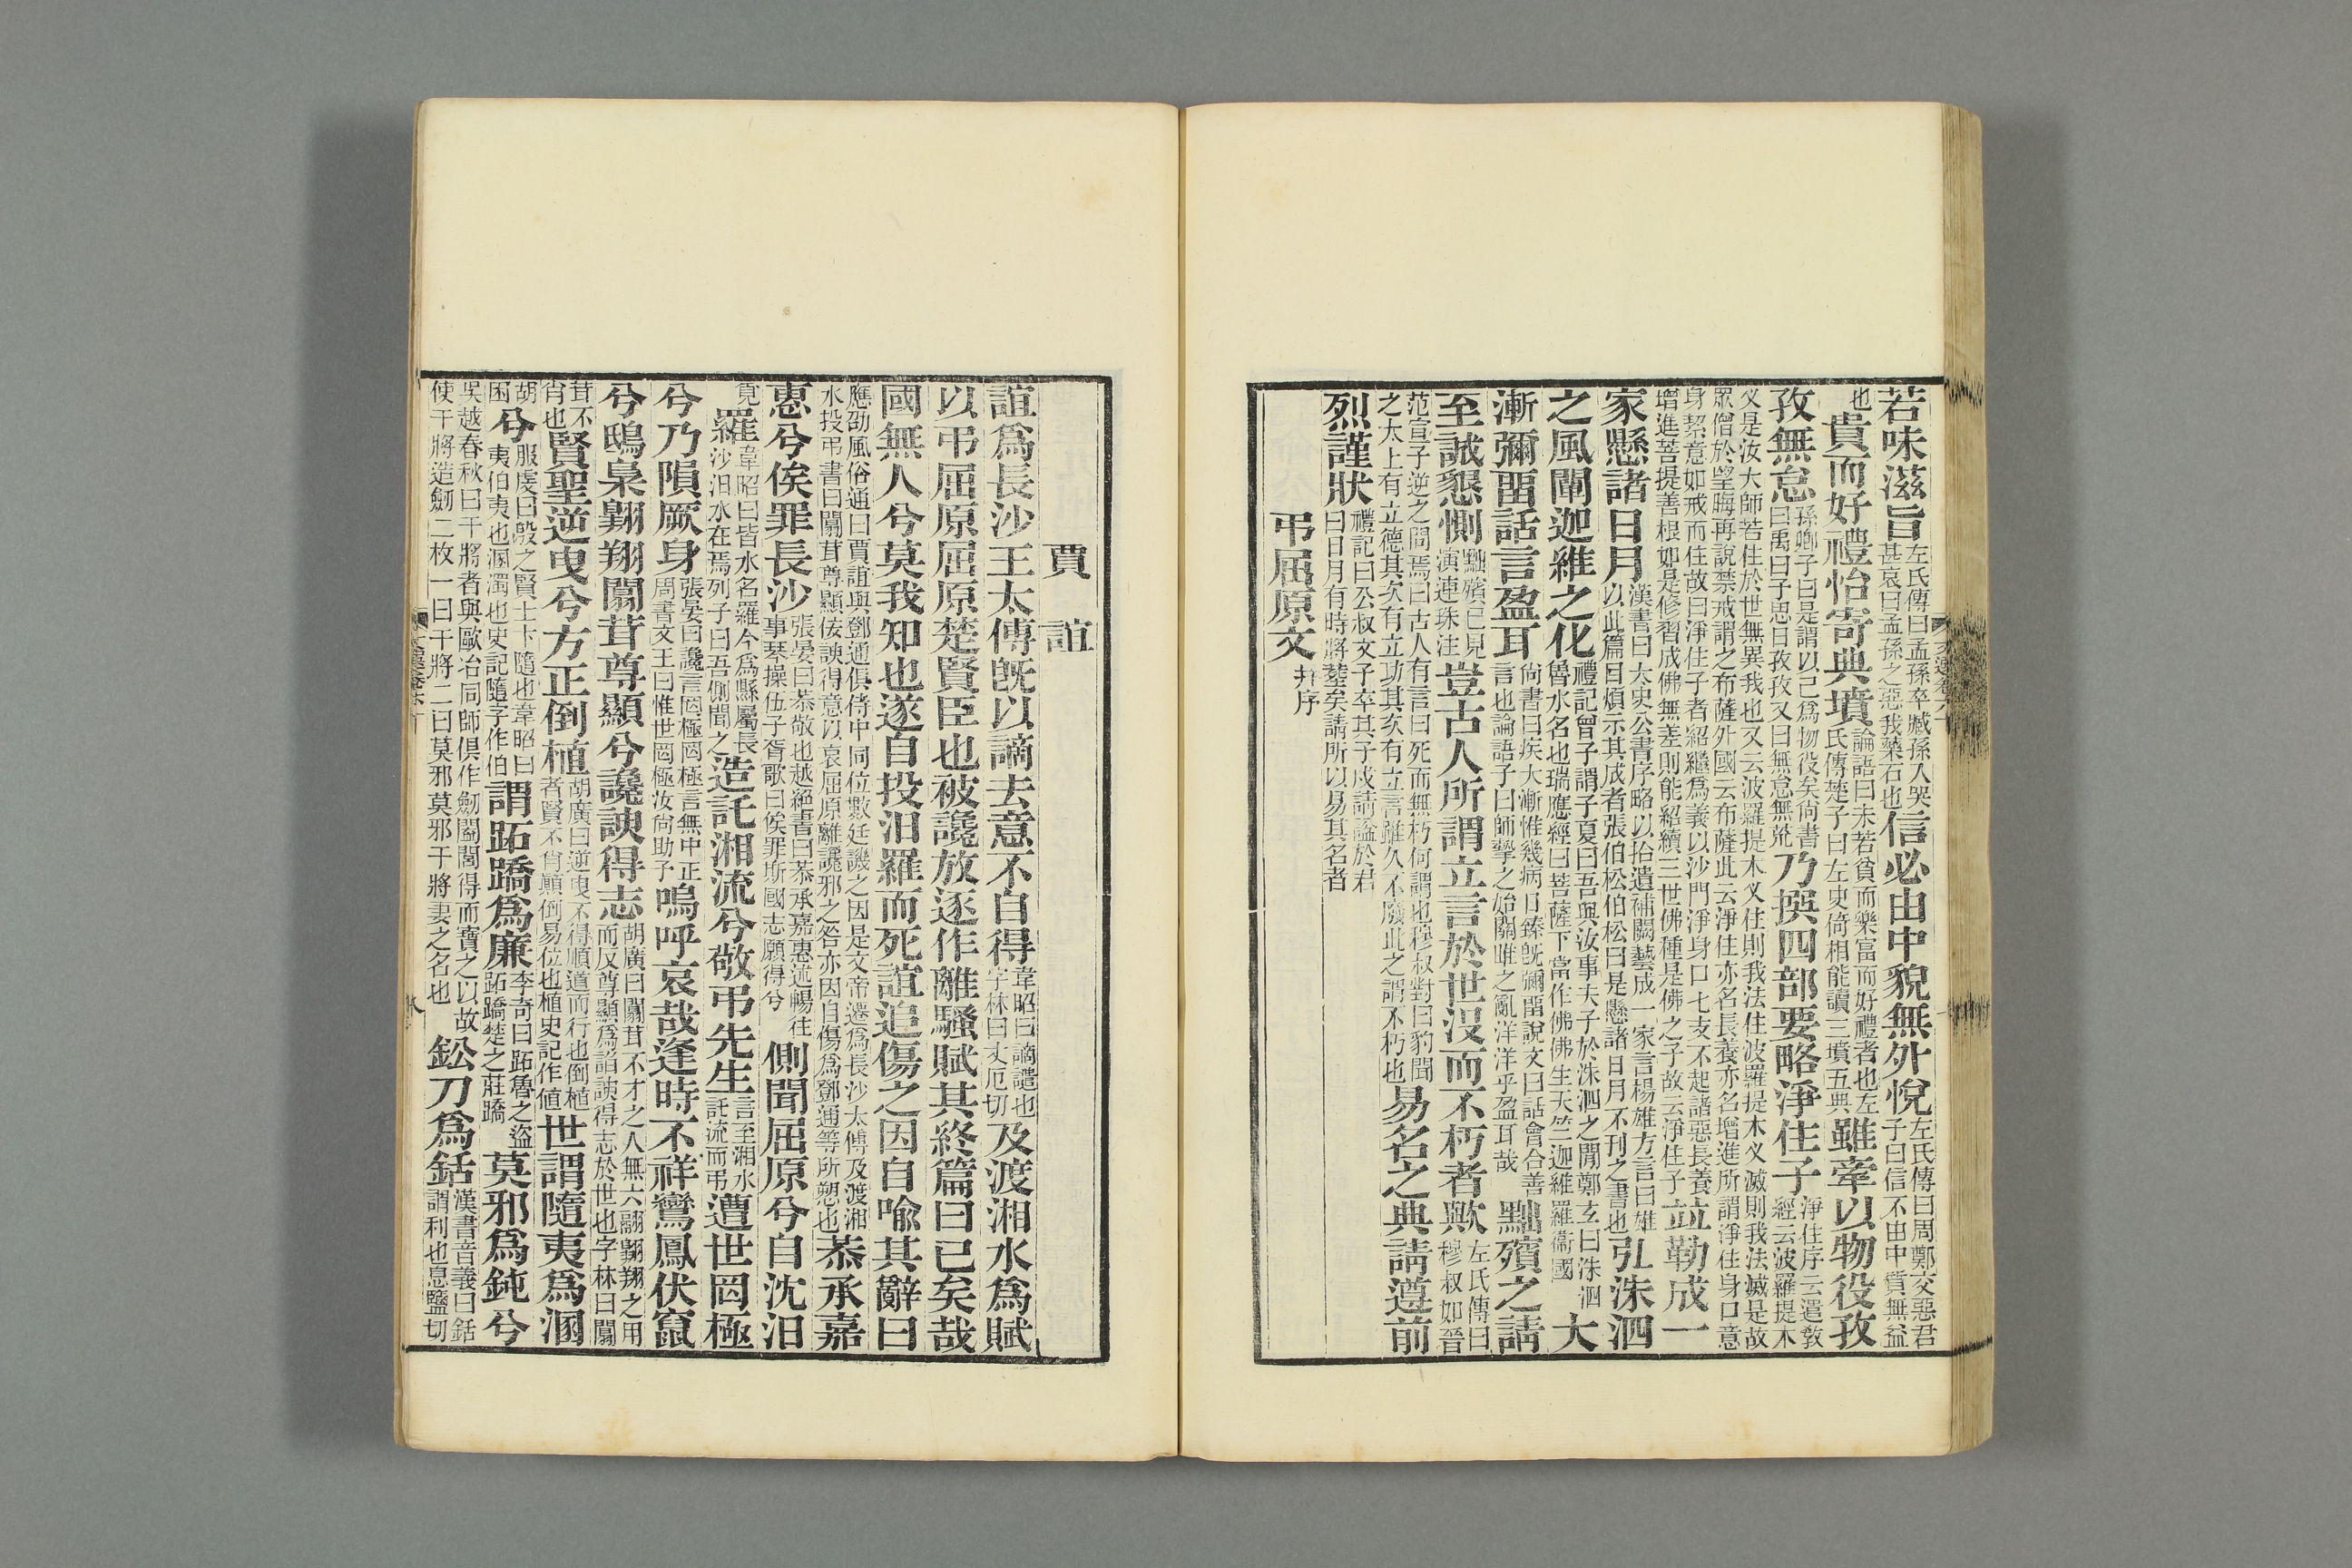 若味滋旨左氏傳曰孟孫卒臧孫入哭甚哀曰孟孫之惡我藥石也信必由中貌無外悅左氏傳曰周鄭交惡君子曰信不由中質無益
也貴而好禮怡寄典墳論語曰未若貧而樂富而好禮者也左氏傳楚子曰左史倚相能讀三墳五典雖牽以物役孜
孜無怠孫卿子曰是謂以己爲物役矣尚書曰禹曰予思日孜孜又曰無怠無荒乃撰四部要略淨住子淨住序云遣敎經云波羅提木
叉是汝大師若住於世無異我也又云波羅提木叉住則我法住波羅提木叉滅則我法滅是故
眾僧於望晦再說禁戒謂之布薩外國云布薩此云淨住亦名長養亦名增進所謂淨住身口意
身絜意如戒而住故曰淨住子者紹繼爲義以沙門淨身口七支不起諸惡長養
增進菩提善根如是修習成佛無差則能紹續三世佛種是佛之子故云淨住子竝勒成一
家懸諸日月漢書曰大史公書序略以拾遺補闕藝成一家言楊雄方言曰雄以此篇目煩示其成者張伯松伯松曰是懸諸日月不刊之書也弘洙泗
之風闡迦維之化禮記曾子謂子夏曰吾與汝事夫子於洙泗之閒鄭玄曰洙泗魯水名也瑞應經曰菩薩下當作佛佛生天竺迦維羅衞國大
漸彌留話言盈耳尙書曰疾大漸惟幾病日臻旣彌留說文曰話會合善言也論語子曰師摯之始關雎之亂洋洋乎盈耳哉黜殯之請
至誠懇惻黜殯已見演連珠注豈古人所謂立言於世沒而不朽者歟左氏傳曰穆叔如晉
范宣子逆之問焉曰古人有言曰死而無朽何謂也穆叔對曰豹聞
之太上有立德其次有立功其次有立言雖久不廢此之謂不朽也易名之典請遵前
烈謹狀禮記曰公叔文子卒其子戍請諡於君曰日月有時將葬矣請所以易其名者
弔屈原文幷序
賈誼
誼爲長沙王太傅旣以謫去意不自得韋昭曰謫譴也字林曰丈厄切及渡湘水爲賦
以弔屈原屈原楚賢臣也被讒放逐作離騷賦其終篇曰已矣哉
國無人兮莫我知也遂自投汨羅而死誼追傷之因自喻其辭曰
應劭風俗通曰賈誼與鄧通俱侍中同位數廷譏之因是文帝遷爲長沙太傅及渡湘
水投弔書曰闒茸尊顯佞諛得意以哀屈原離讒邪之咎亦因自傷爲鄧通等所愬也恭承嘉
惠兮俟罪長沙張晏曰恭敬也越絕書曰恭承嘉惠述暢往事琴操伍子胥歌曰俟罪斯國志願得兮側聞屈原兮自沈汨
羅韋昭曰皆水名羅今爲縣屬長沙汨水在焉列子曰吾側聞之造託湘流兮敬弔先生言至湘水託流而弔遭世罔極
兮乃隕厥身張晏曰讒言罔極罔極言無中正周書文王曰惟世罔極汝尙助予嗚呼哀哉逢時不祥鸞鳳伏竄
兮鴟梟翺翔闒茸尊顯兮讒諛得志胡廣曰闒茸不才之人無六翮翺翔之用而反尊顯爲諂諛得志於世也字林曰闒
茸不肖也賢聖逆曳兮方正倒植胡廣曰逆曳不得順道而行也倒植者賢不肖顚倒易位也植史記作値世謂隨夷爲溷
兮服虔曰殷之賢士卞隨也韋昭曰夷伯夷也溷濁也史記隨字作伯謂跖蹻爲廉李奇曰跖魯之盜跖蹻楚之莊蹻莫邪爲鈍兮
吳越春秋曰干將者與歐冶同師俱作劒闔閭得而寶之以故
使干將造劒二枚一曰干將二曰莫邪莫邪干將妻之名也鈆刀爲銛漢書音義曰銛謂利也息鹽切